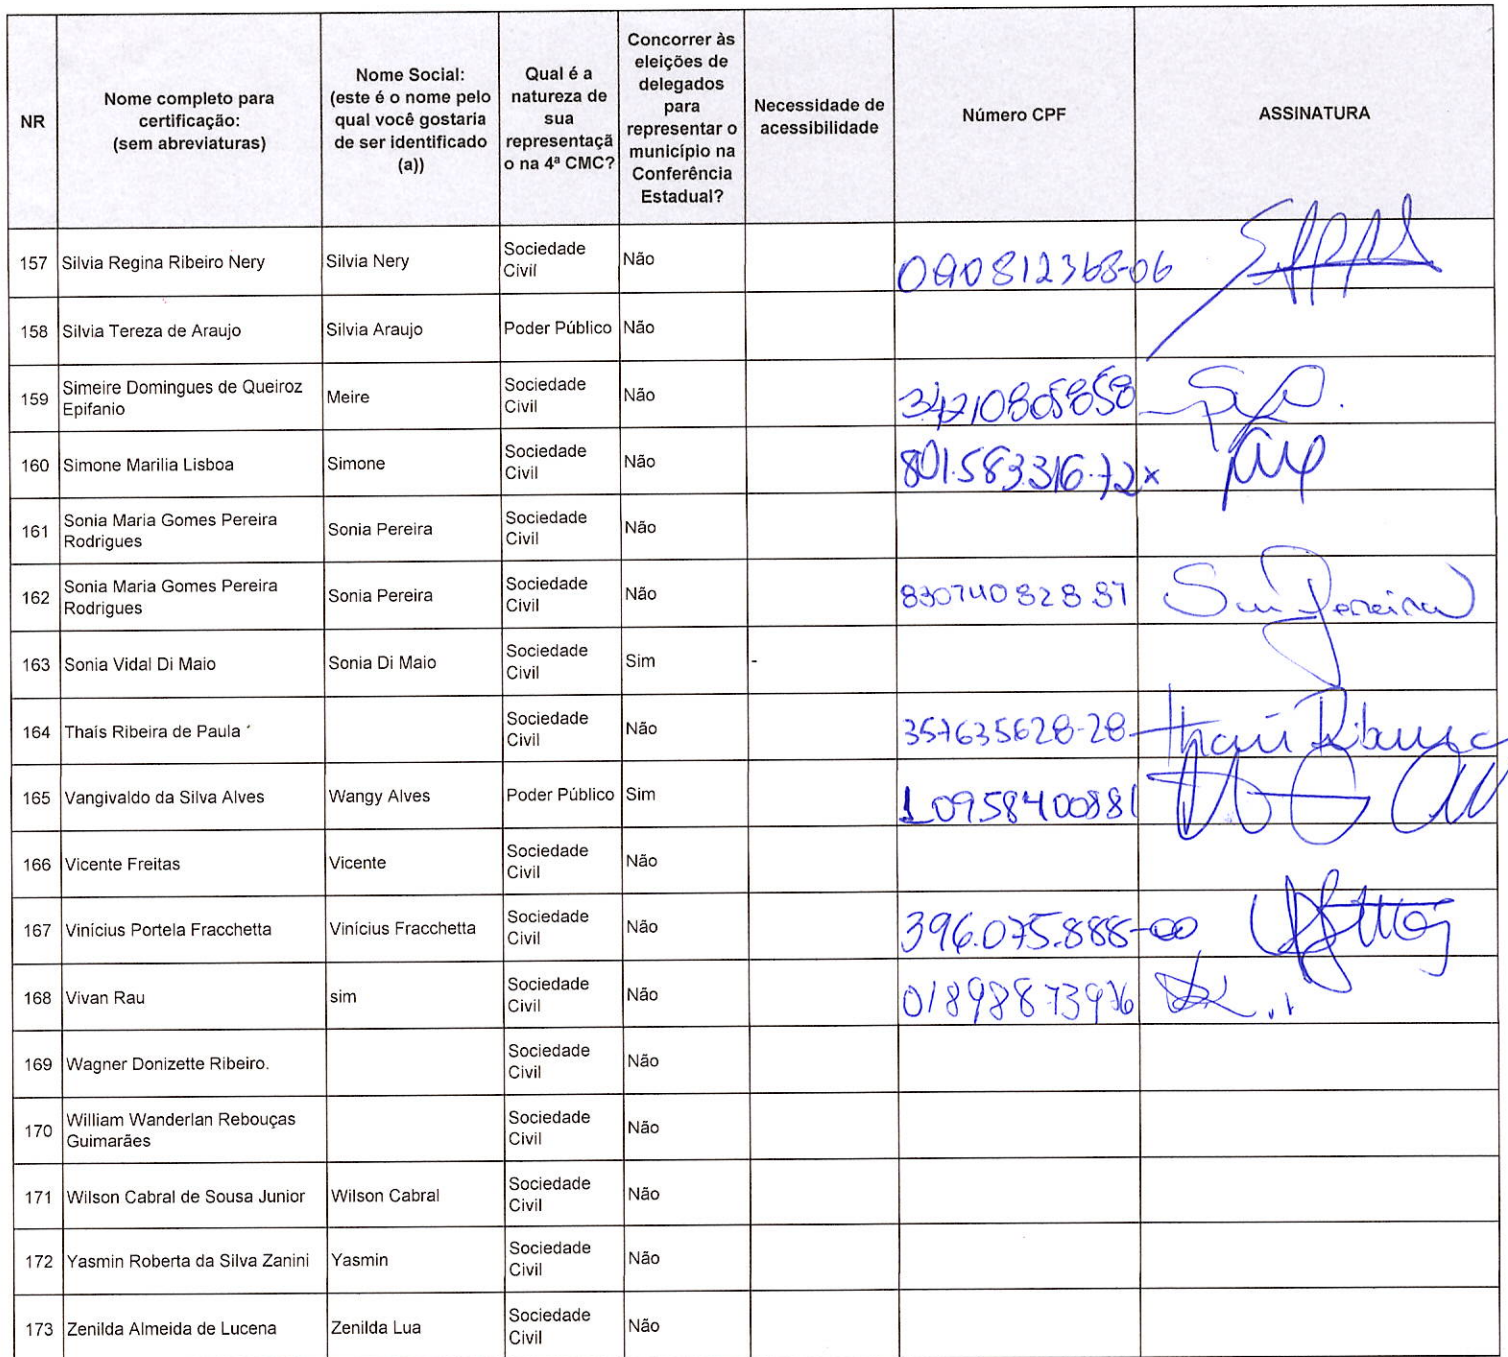 NR
Nome completo para
certificação:
(sem abreviaturas)
Nome Social:
(este é o nome pelo
qual você gostaria
de ser identificado
(a))
Qual é a
natureza de
sua
representaçã
o na 4ª CMC?
Concorrer às
eleições de
delegados
para
representar o
município na
Conferência
Estadual?
Necessidade de
acessibilidade
Número CPF
ASSINATURA
157 Silvia Regina Ribeiro Nery Silvia Nery Sociedade
Civil Não 090812368-06
158 Silvia Tereza de Araujo Silvia Araujo Poder Público Não
159 Simeire Domingues de Queiroz
Epifanio Meire Sociedade
Civil Não 34210805858
160 Simone Marilia Lisboa Simone Sociedade
Civil Não 801.583.316-72 x
161 Sonia Maria Gomes Pereira
Rodrigues Sonia Pereira Sociedade
Civil Não
162 Sonia Maria Gomes Pereira
Rodrigues Sonia Pereira Sociedade
Civil Não 830740828 87 Pereira
163 Sonia Vidal Di Maio Sonia Di Maio Sociedade
Civil Sim -
164 Thaís Ribeira de Paula Sociedade
Civil Não 357635628-28 Thais Ribeira
165 Vangivaldo da Silva Alves Wangy Alves Poder Público Sim 10958400881
166 Vicente Freitas Vicente Sociedade
Civil Não
167 Vinícius Portela Fracchetta Vinícius Fracchetta Sociedade
Civil Não 396.075.888-00
168 Vivan Rau sim Sociedade
Civil Não 01898873976
169 Wagner Donizette Ribeiro. Sociedade
Civil Não
170 William Wanderlan Rebouças
Guimarães Sociedade
Civil Não
171 Wilson Cabral de Sousa Junior Wilson Cabral Sociedade
Civil Não
172 Yasmin Roberta da Silva Zanini Yasmin Sociedade
Civil Não
173 Zenilda Almeida de Lucena Zenilda Lua Sociedade
Civil Não